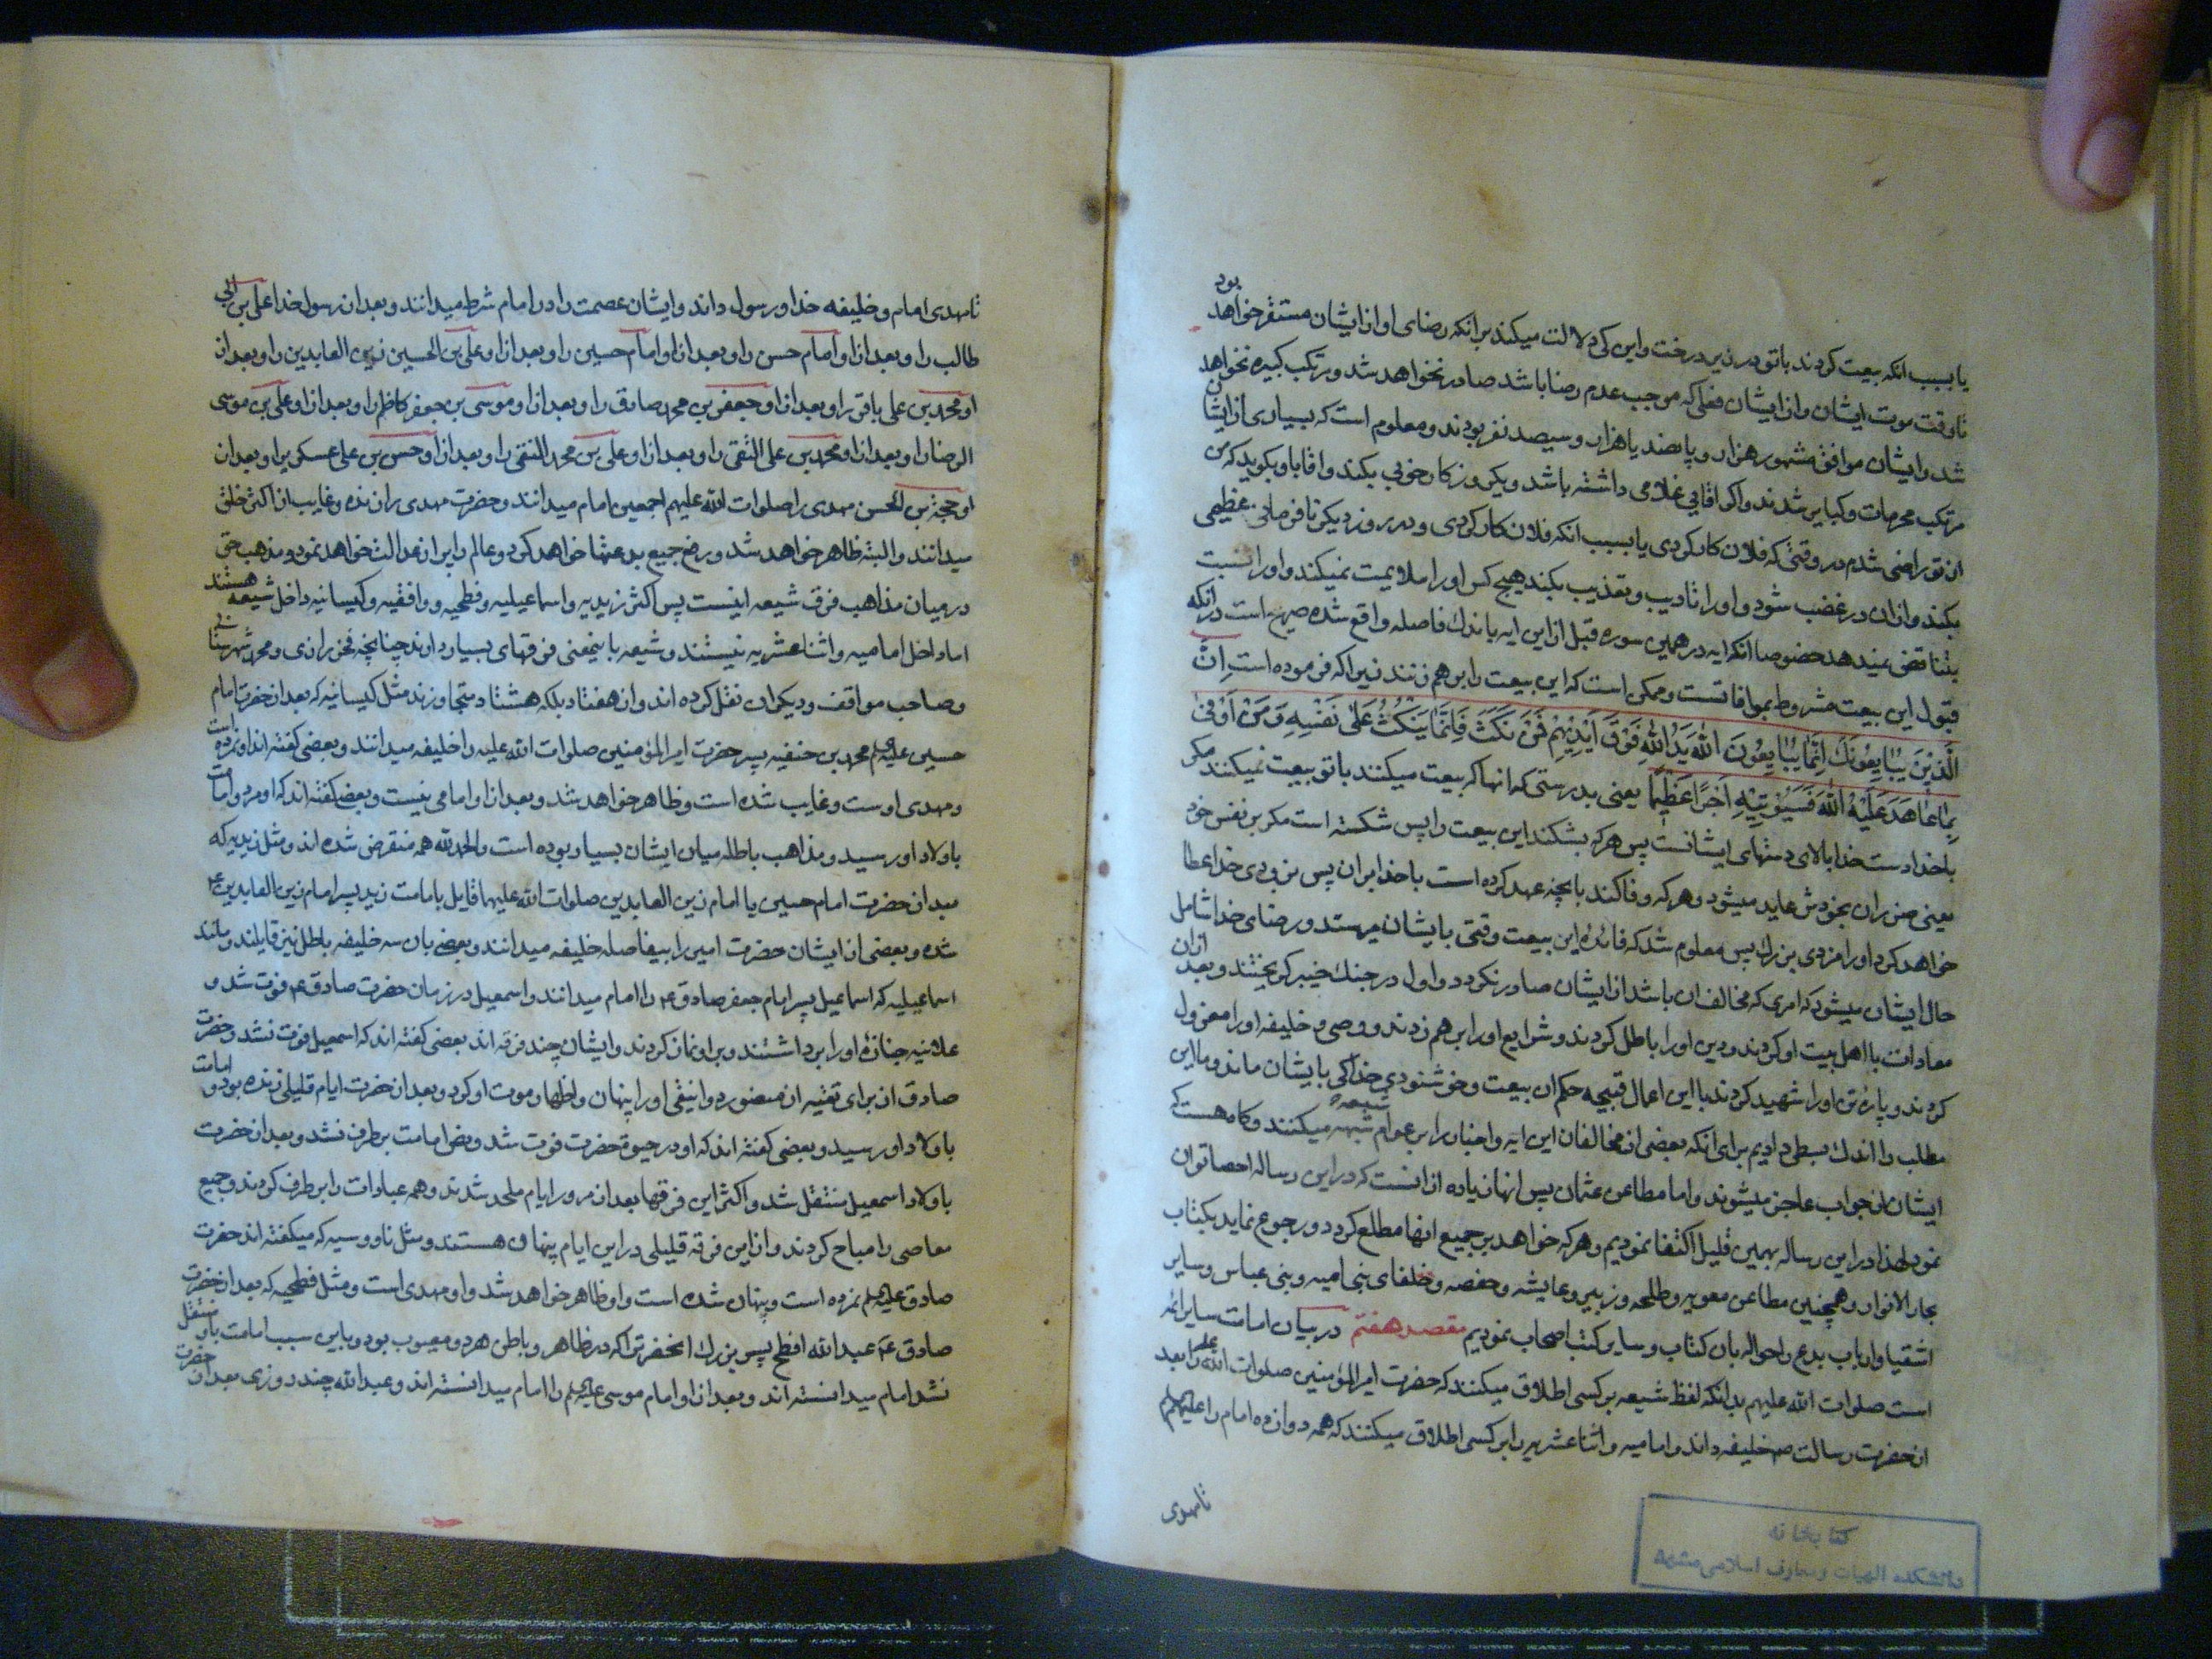 یا بسبب انکه بیعت کردند با تو در زیر درخت و این کی دلالت میکند بر انکه رضای او از ایشان مستقر خواهد بود
تا وقت موت ایشان و از ایشان فعلی که موجب عدم رضا باشد صادر نخواهد شد و مرتکب کبیره نخواهند
شد و ایشان موافق مشهور هزار و پانصد یا هزار و سیصد نفر بودند و معلوم است که بسیاری از ایشان
مرتکب محرمات و کبایر شدند و اکر اقایی غلامی داشته باشد و یکروز کار خوبی بکند و اقا باو بکوید که من
از تو راضی شدم در وقتی که فلان کار کردی یا بسبب انکه فلان کار کردی و در روز دیکر نافرمانی عظیمی
بکند و ازان در غضب شود و او را تادیب و تعذیب بکند هیچ کس او را ملامت نمیکند و او را نسبت
بتناقض نمیدهد خصوصا انکه ایه در همین سوره قبل از این ایه باندک فاصله واقع شده صریح است در انکه
قبول این بیعت مشروط بموافاتست و ممکن است که این بیعت را بر هم زنند زیرا که فرموده است اِنَّ
الَّذِیْنَ یُبَایِعُوْنَكَ اِنَّمَا یُبَایِعُوْنَ اللهَ یَدُ اللهِ فَوْقَ اَیْدِیْهِمْ فَمَنْ نَکَثَ فَاِنَّمَا یَنْکُثُ عَلٰی نَفْسِهِ وَ مَنْ اَوْفٰی
بِمَا عَاهَدَ عَلَیْهُ اللهَ فَسَیُؤْتِیْهِ اَجْرًا عَظِیْمًا یعنی بدرستی که انها که بیعت میکنند با تو بیعت نمیکنند مکر
با خدا دست خدا بالای دستهای ایشانست پس هر که بشکند این بیعت را پس شکسته است مکر بر نفس خود
یعنی ضرران بخودش عاید میشود و هر که وفا کند بانچه عهد کرده است با خدا بران پس بزودی خدا عطا
خواهد کرد او را مزدی بزرك پس معلوم شد که فائده این بیعت وقتی بایشان میرسد و رضای خدا شامل
حال ایشان میشود که امری که مخالف ان باشد از ایشان صادر نکردد و اول در جنك خیبر کریختند و بعد ازان
معادات با اهل بیت او کردند و دین او را باطل کردند و شرایع او را بر هم زدند و وصی و خلیفه او را معزول
کردند و پاره تن او را شهید کردند با این اعمال قبیحه حکم ان بیعت و خوشنودی خدا کی بایشان ماند و ما این
مطلب را اندك بسطی دادیم برای انکه بعضی از مخالفان این ایه و اخبار را بر عوام شیعه شبهه میکنند و کاه هست که
ایشان از جواب عاجز میشوند و اما مطاعن عثمان پس انها زیاده از انست که در این رساله احصا توان
نمود لهذا در این رساله بهمین قلیل اکتفا نمودیم و هر که خواهد بر جمیع انها مطلع کردد رجوع نماید بکتاب
بحار الانوار و همچنین مطاعن معویه و طلحه و زبیر و عایشه و حفصه و خلفای بنی امیه و بنی عباس و سایر
اشقیا و ارباب بدع را حواله بان کتاب و سایر کتب اصحاب نمودیم مقصد هفتم در بیان امامت سایر ائمه
است صلوات الله علیهم بدانکه لفظ شیعه بر کسی اطلاق میکنند که حضرت امیر المؤمنین صلوات الله علیه را بعد
از حضرت رسالت ص خلیفه داند و امامیه و اثنا عشریه را بر کسی اطلاق میکنند که همه دوازده امام را علیهم السلام
تا مهدی
کتابخانه
دانشکده الهیات و معارف اسلامی مشهد
تا مهدی امام و خلیفه خدا و رسول داند و ایشان عصمت را در امام شرط میدانند و بعد از رسول خدا علی بن ابی
طالب را و بعد از او امام حسن را و بعد از او امام حسین را و بعد از او علی بن الحسین زین العابدین را و بعد از
او محمد بن علی باقر را و بعد از او جعفر بن محمد صادق را و بعد از او موسی بن جعفر کاظم را و بعد از او علی بن موسی
الرضا را و بعد از او محمد بن علی التقی را و بعد از او علی بن محمد النقی را و بعد از او حسن بن علی عسکری را و بعد از
او حجة بن الحسن مهدی را صلوات الله علیهم اجمعین امام میدانند و حضرت مهدی را زنده و غایب از اکثر خلق
میدانند و البته ظاهر خواهد شد و رفع جمیع بدعتها خواهد کرد و عالم را پر از عدالت خواهد نمود و مذهب حق
در میان مذاهب فرق شیعه اینست پس اکثر زیدیه و اسماعیلیه و فطحیه و واقفیه و کیسانیه داخل شیعه هستند
اما داخل امامیه و اثنا عشریه نیستند و شیعه باینمعنی فرقهای بسیار دارند چنانچه فخر رازی و محمد شهرستانی
و صاحب مواقف و دیکران نقل کرده اند و از هفتاد بلکه هشتاد متجاوزند مثل کیسانیه که بعد از حضرت امام
حسین علیه السلام محمد بن حنفیه پسر حضرت امیر المؤمنین صلوات الله علیه را خلیفه میدانند و بعضی کفته اند او نمرده است
و مهدی اوست و غایب شده است و ظاهر خواهد شد و بعد از او امامی نیست و بعضی کفته اند که او مرد و امامت
باولاد او رسید و مذاهب باطله میان ایشان بسیار بوده است و الحمد لله همه منقرض شده اند و مثل زیدیه که
بعد از حضرت امام حسین یا امام زین العابدین صلوات الله علیهما قایل بامامت زید پسر امام زین العابدین ع
شده و بعضی از ایشان حضرت امیر را بیفاصله خلیفه میدانند و بعضی بان سه خلیفه باطل نیز قایلند و مانند
اسماعیلیه که اسماعیل پسر امام جعفر صادق ع را امام میدانند و اسمعیل در زمان حضرت صادق ع فوت شد و
علانیه جنازه او را برداشتند و بر او نماز کردند و ایشان چند فرقه اند بعضی کفته اند که اسمعیل فوت نشد و حضرت
صادق از برای تقیه از منصور دوانیقی او را پنهان و اظهار موت او کرد و بعد از حضرت ایام قلیلی زنده بود و امامت
باولاد او رسید و بعضی کفته اند که او در حیوة حضرت فوت شد و نص امامت بر طرف نشد و بعد از حضرت
باولاد اسمعیل منتقل شد و اکثر این فرقها بعد از مرور ایام ملحد شدند و همه عبادات را بر طرف کردند و جمیع
معاصی را مباح کردند و از این فرقه قلیلی در این ایام پنهان هستند و مثل ناووسیه که میکفته اند حضرت
صادق علیه السلام نمرده است و پنهان شده است و او ظاهر خواهد شد و او مهدی است و مثل فطحیه که بعد از حضرت
صادق ع عبد الله افطح پسر بزرك انحضرت را که در ظاهر و باطن هر دو معیوب بود و باین سبب امامت باو منتقل
نشد امام میدانسته اند و بعد از او امام موسی علیه السلام را امام میدانسته اند و عبد الله چند روزی بعد از حضرت